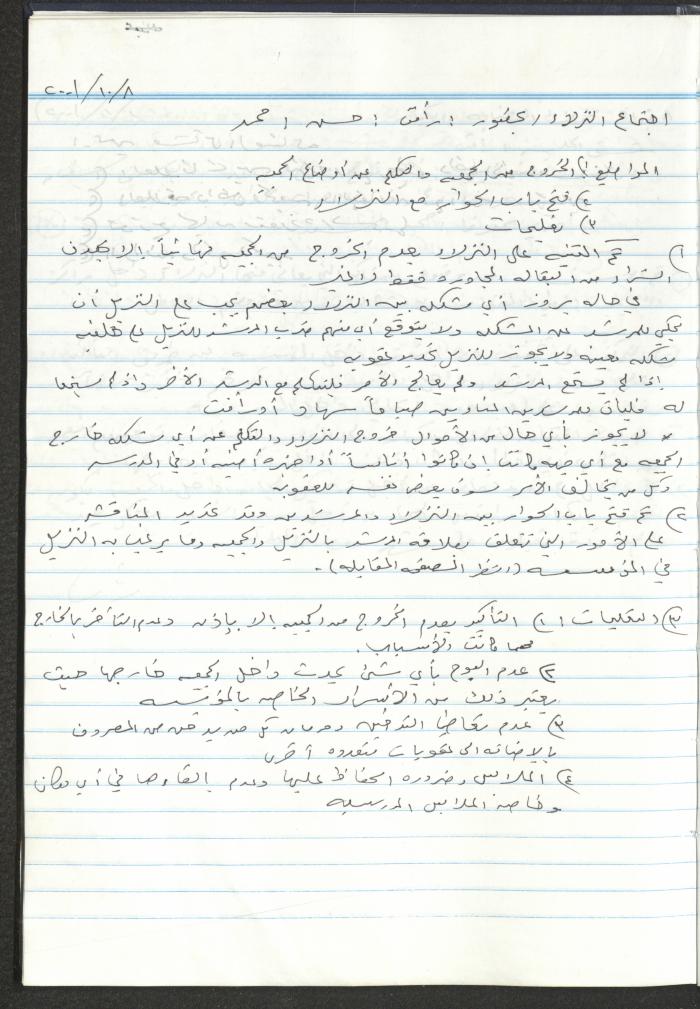 ٢٠٠١/١٠/٨
اجتماع النزلاء بحضور: رأفت: حسن احمد
المواضيع: ١) الخروج من الجمعيه والتكلم عن أوضاع الجمعيه
٢) فتح باب الحوار مع النزلاء
٣) تعليمات
١) تم التنبيه على النزلاء بعدم الخروج من الجمعيه نهائياً إلا بهدف
الشراء من البقاله المجاوره فقط لا غير
في حاله بروز أي مشكله بين النزلاء بعضهم يجب على النزيل أن
يحكي للمرشد عن المشكله ولا يتوقع أي منهم ضرب المرشد للنزيل على خلفيه
مشكله معينه ولا يجوز للنزيل تحديد العقوبه
إذا لم يستمع المرشد ولم يعالج الأمر فليتكلم مع المرشد الآخر واذا لم يستمعا
له فليأت للمرشدين المناوبين صباحاً سهاد أو رأفت
* لا يجوز بأي حال من الأحوال خروج النزلاء والتكلم عن أي مشكله خارج
الجمعيه مع أي جهه كانت ان كانوا أناساً أو أجهزه أمنيه أو في المدرسه
وكل من يخالف الأمر سوف يعرض نفسه للعقوبه
٢) تم فتح باب الحوار بين النزلاء والمرشدين وقد تحديد المناقشه
على الأمور التي تتعلق بعلاقه المرشد بالنزيل والجمعيه وما يرغب به النزيل
في المؤسسه (انظر الصفحه المقابله).
٣) التعليمات: ١) التأكيد بعدم الخروج من الجمعيه إلا بإذن وعدم التأخر بالخارج
مهما كانت الأسباب.
٢) عدم البوح بأي شئ يحدث داخل الجمعيه خارجها حيث
يعتبر ذلك من الأسرار الخاصه بالمؤسسه
٣) عدم تعاطي التدخين وحرمان كل من يدخن من المصروف
بالإضافه الى عقوبات متعدده أخرى
٤) الملابس وضروره الحفاظ عليها وعدم إلقاءها في أي مكان
وخاصه الملابس المدرسيه